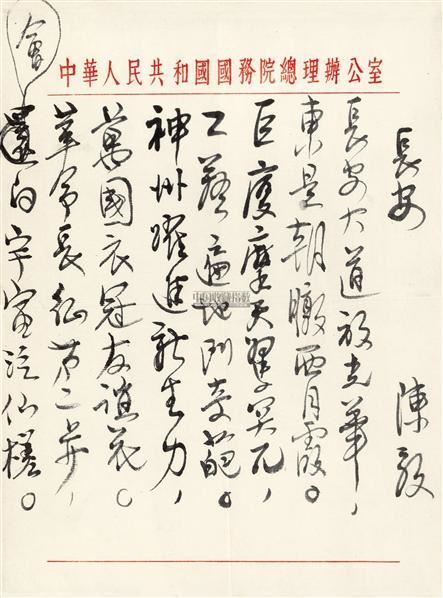 中華人民共和國國務院總理辦公室
長安 陳毅
長安大道放光華，
東是朝暾西月霞。
巨廈摩天突兀，
工藝遍地鬥奇葩。
神州躍進新生力，
萬國衣冠友誼花。
革命長征第二步，
會
還向宇宙泛仙槎。